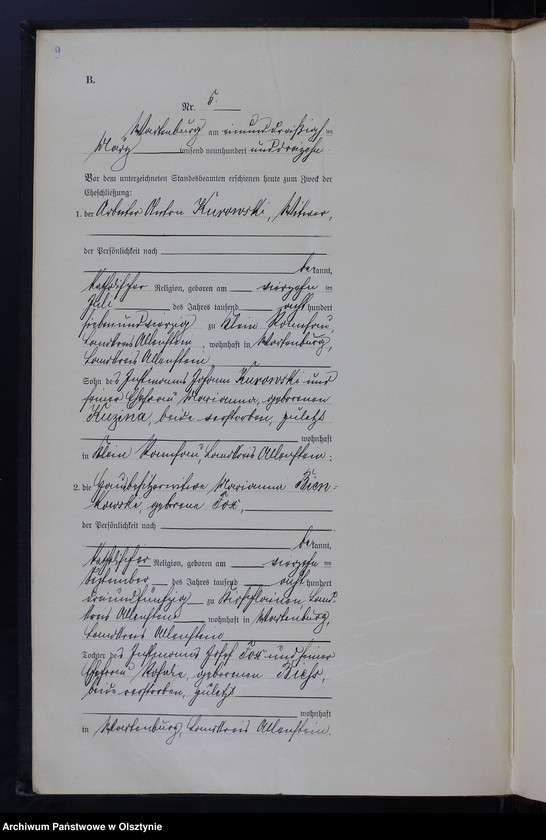 9
B.
Nr. 5.
Wartenburg am einunddreißigsten
März tausend neunhundert unddreizehn.
Vor dem unterzeichneten Standesbeamten erschienen heute zum Zweck der
Eheschließung:
1. der Arbeiter Anton Kurowski, Witwer,
der Persönlichkeit nach
bekannt,
katholischer Religion, geboren am vierzehnten
Juli des Jahres tausend achthundert
siebenundvierzig zu Klein
Landkreis Allenstein, wohnhaft in Wartenburg,
Landkreis Allenstein
Sohn des Instmanns Johann Kurowski und
seiner Ehefrau Marianna, geborenen
Kuzina, beide verstorben, zuletzt
wohnhaft
in Klein Landkreis Allenstein.
2. die Hausbesitzerwitwe Marianna Bien-
kowski, geborene Fox,
der Persönlichkeit nach
bekannt,
katholischer Religion, geboren am vierzehnten
September des Jahres tausend achthundert
dreiundfünfzig zu Land-
kreis Allenstein wohnhaft in Wartenburg,
Landkreis Allenstein
Tochter des Instmanns Josef Fox und seiner
Ehefrau Rosalie, geborenen
beide verstorben, zuletzt
wohnhaft
in Wartenburg, Landkreis Allenstein.
Archiwum Państwowe w Olsztynie